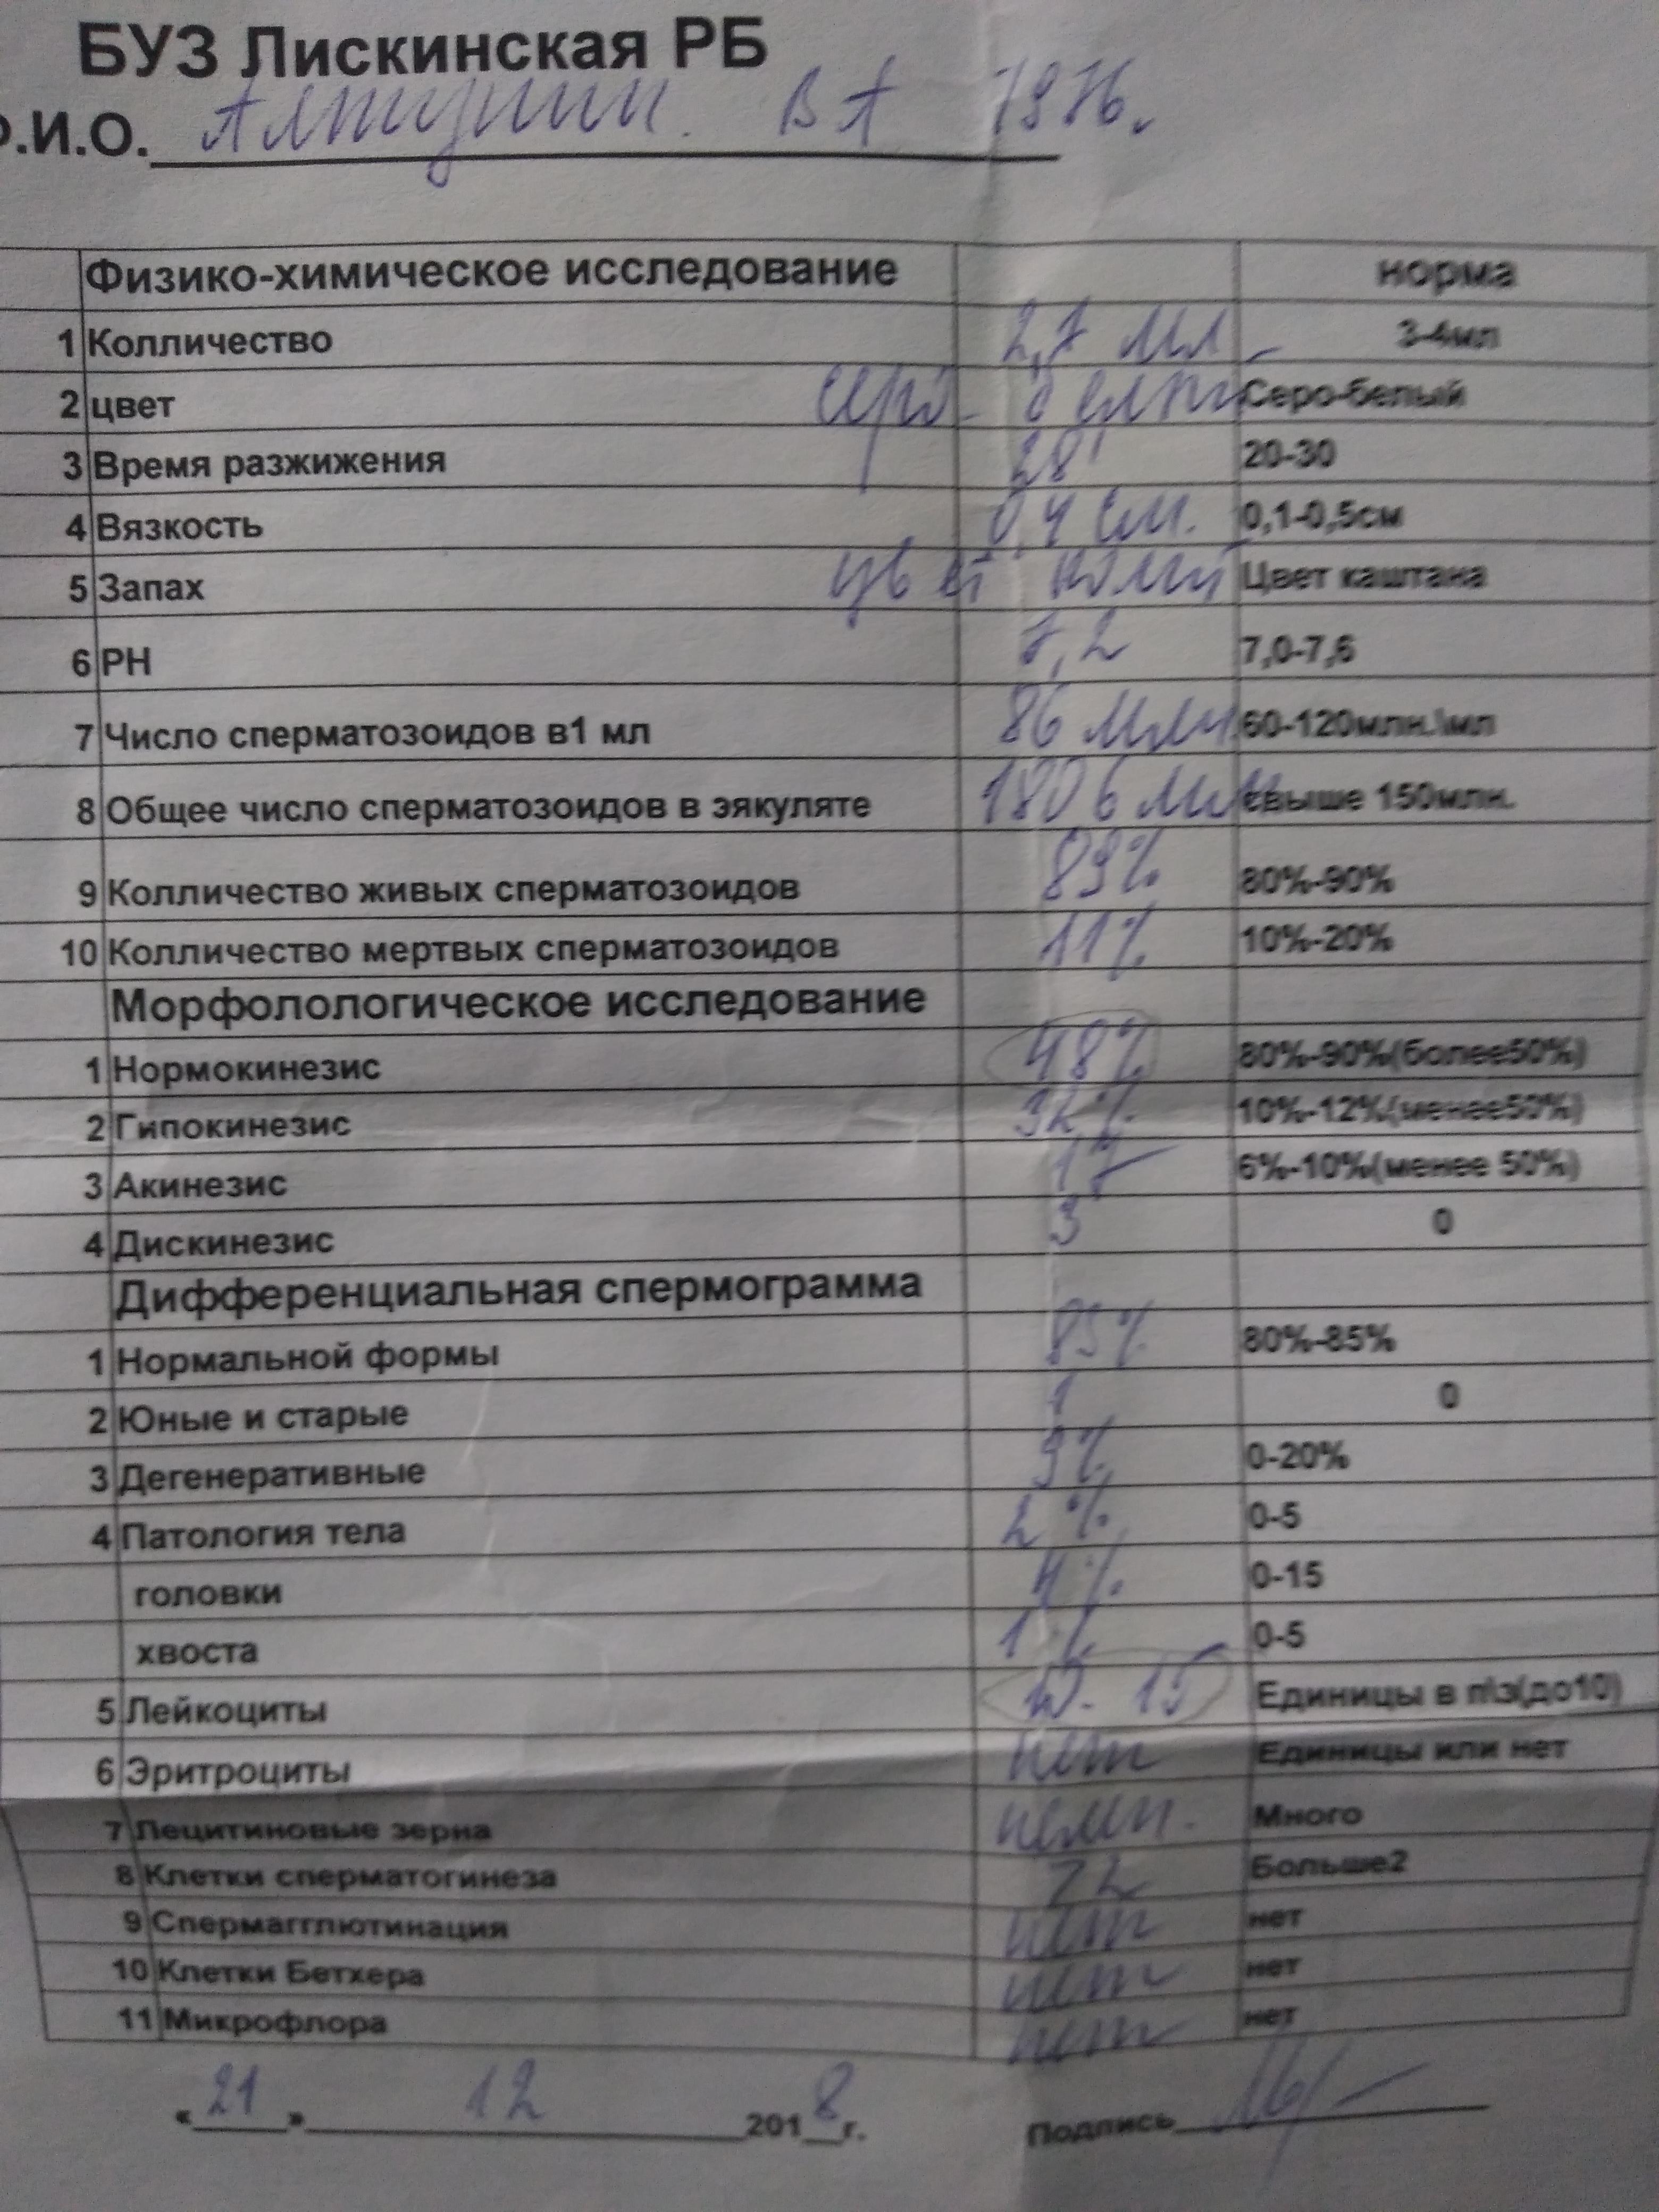 БУЗ Лискинская РБ
Ф.И.О. В А 1976.
Физико-химическое исследование норма
1 Колличество 2,7 мл 3-4мл
2 цвет серо-белый Серо-белый
3 Время разжижения 28' 20-30
4 Вязкость 0,4 см. 0,1-0,5см
5 Запах цвет Цвет каштана
6 РН 7,2 7,0-7,6
7 Число сперматозоидов в1 мл 86 млн. 60-120млн.\мл
8 Общее число сперматозоидов в эякуляте 1806 млн свыше 150млн.
9 Колличество живых сперматозоидов 89% 80%-90%
10 Колличество мертвых сперматозоидов 11% 10%-20%
Морфолологическое исследование
1 Нормокинезис 48% 80%-90%(более50%)
2 Гипокинезис 32% 10%-12%(менее50%)
3 Акинезис 17 6%-10%(менее 50%)
4 Дискинезис 3 0
Дифференциальная спермограмма
1 Нормальной формы 83% 80%-85%
2 Юные и старые 1 0
3 Дегенеративные 9% 0-20%
4 Патология тела 2% 0-5
головки 4% 0-15
хвоста 1% 0-5
5 Лейкоциты 10-15 Единицы в п\з(до10)
6 Эритроциты нет Единицы или нет
7 Лецитиновые зерна немн. Много
8 Клетки сперматогинеза Больше2
9 Спермагглютинация нет нет
10 Клетки Бетхера нет нет
11 Микрофлора нет нет
«21» 12 2018г. Подпись